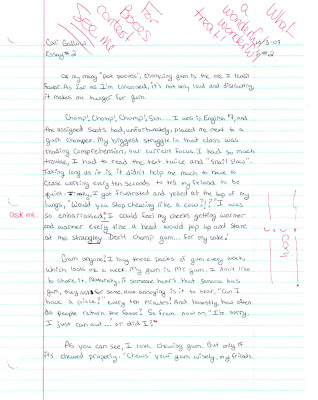 What
a
wonderful
wonderful
treat!
For
Boces
contest
See me
Cali Gallow
Essay #2
#2
Of my many "pet peeves", chomping gum is the one I least
favor. As far as I'm concerned, it's not only loud and distracting,
it makes me hunger for gum.
Chomp! Chomp! Chomp! I was in English 9, and
the assigned seats had, unfortunately, placed me next to a
gum chomper. My biggest struggle in that class was
reading comprehension, our current focus. I had so much
trouble, I had to read the text twice and "snail slow".
Taking long as it is, it didn't help me much to have to
cease working every ten seconds to tell my friend to be
quiet. Finally, I got frustrated and yelled at the top of my
lungs, "Would you stop chewing like a cow?!?" I was
so embarrassed! I could feel my cheeks getting warmer
and warmer every time a head would pop up and stare
at me strangley. Don't chomp gum... for my sake!
ask me
Gum anyone? I buy three packs of gum every week,
which lasts me a week. My gum is my gum. I don't like
to share it. Naturally, if someone hears that someone has
gum, they ask for some. How annoying is it to hear, "Can I
have a piece?" every ten minutes? And honestly, how often
do people return the favor? So from now on, "I'm sorry,
I just ran out...or did I?"
As you can see, I love chewing gum. But only if
it's chewed properly. "Chews" your gum wisely, my friends.